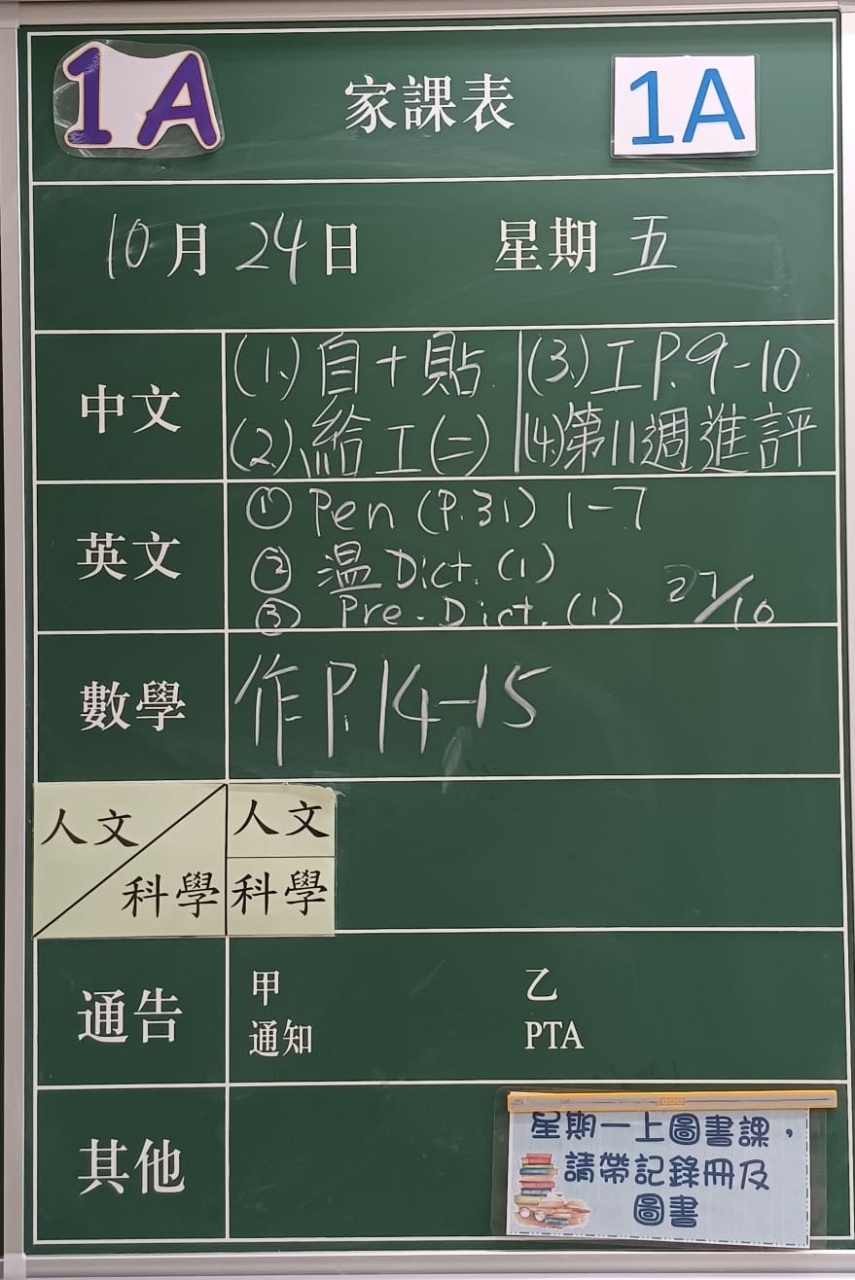 1A
家課表
1A
10月24日 星期五
中文
(1.) 自十貼
(2.) 給工(二)
(3.) 工P.9-10
(4.) 第11週進評
英文
① Pen (P.31) 1-7
② 溫 Dict. (1)
③ Pre-Dict. (1) 27/10
數學
作P.14-15
人文/科學
人文
科學
通告
甲 乙
通知 PTA
其他
星期一上圖書課，
請帶記錄冊及
圖書